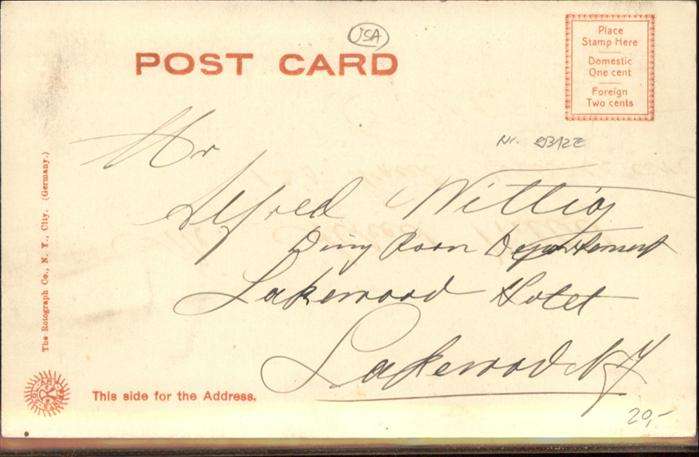 USA
POST CARD
Place
Stamp Here
Domestic
One cent
Foreign
Two cents
Mr
Alfred Wittig
Dining Room Departement
Lakewood Hotel
Lakewood NY
The Rotograph Co., N. Y., City. (Germany.)
This side for the Address.
20,-